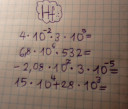 4 · 10⁻² · 3 · 10⁵ =
68 · 10⁴ · 532 =
-2,98 · 10² · 3 · 10⁻⁵ =
15 · 10⁴ + 28 · 10³ =